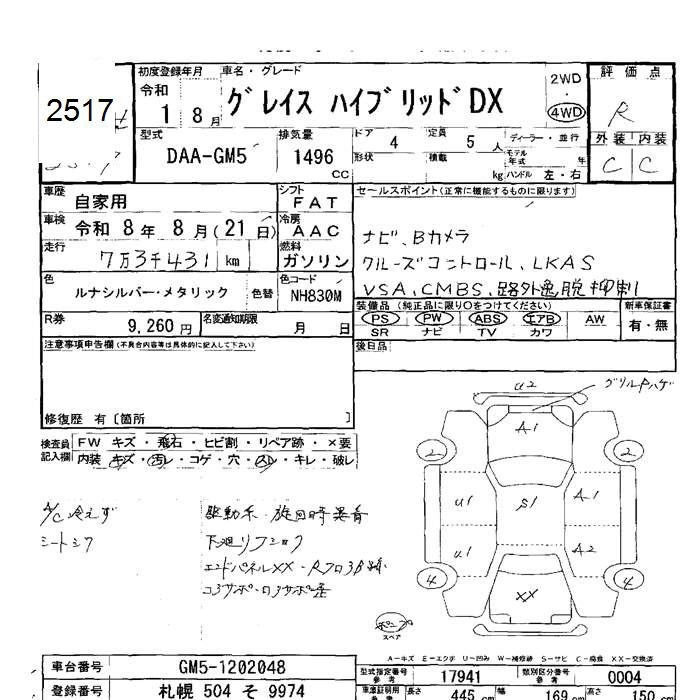 2517
初度登録年月 車名・グレード
令和 1 8月 グレイス ハイブリッドDX
2WD ・ 4WD
評価点 R
外装 内装
C C
型式 DAA-GM5
排気量 1496 CC
ドア 4 定員 5人 ディーラー・並行
形状 積載 kg モデル年式 年 ハンドル 左・右
車歴 自家用 シフト FAT
車検 令和 8年 8月(21日) 冷房 AAC
走行 7万3千431 km 燃料 ガソリン
色 ルナシルバー・メタリック 色替 色コード NH830M
R券 9,260円 名変通知期限 月 日
セールスポイント(正常に機能するものに限ります)
ナビ、Bカメラ
クルーズコントロール、LKAS
VSA、CMBS、路外逸脱抑制
装備品(純正品に限り○をつけてください) 新車保証書
PS PW ABS エアB AW 有・無
SR ナビ TV カワ
後日品
注意事項申告欄(不具合内容等は具体的に記入して下さい)
修復歴 有〔箇所 〕
検査員記入欄 FW キズ・飛石・ヒビ割・リペア跡・×要
内装 キズ・汚レ・コゲ・穴・スレ・キレ・破レ
A/C冷えず
シートシワ
駆動系・旋回時異音
下廻りフショク
エンドパネルXX・Rフロア
コアサポ
U2 グリルPハゲ
A1
2 2
U1 S1 A1
U1 A2
4 4
XX
スペア
A-キズ E-エクボ U-凹み W-補修跡 S-サビ C-腐食 XX-交換済
車台番号 GM5-1202048
型式指定番号 参考 17941 類別区分番号 参考 0004
登録番号 札幌 504 そ 9974
車庫証明用 参考 長さ 445 cm 幅 169 cm 高さ 150 cm